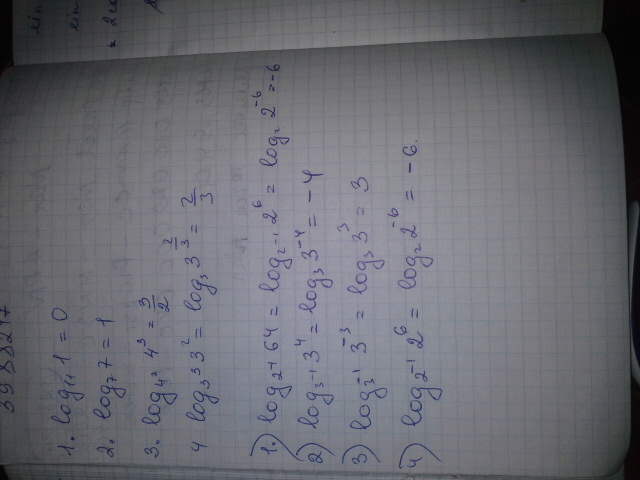 1. log₁₁ 1 = 0
2. log₇ 7 = 1
3. log₄² 4³ = 3/2
4 log₃³ 3² = log₃ 3^(2/3) = 2/3
1.) log₂⁻¹ 64 = log₂⁻¹ 2⁶ = log₂ 2⁻⁶ = -6
2) log₃⁻¹ 3⁴ = log₃ 3⁻⁴ = -4
3) log₃⁻¹ 3⁻³ = log₃ 3³ = 3
4) log₂⁻¹ 2⁶ = log₂ 2⁻⁶ = -6.